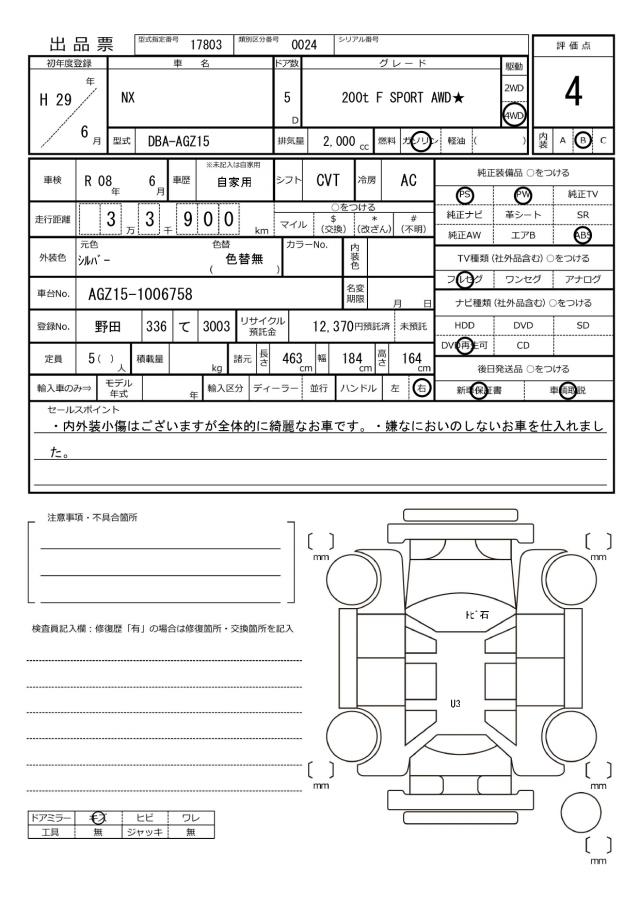 出品票
型式指定番号 17803 類別区分番号 0024 シリアル番号
評価点
4
初年度登録 車名 ドア数 グレード 駆動
H 29 年 6 月
NX
5 D
200t F SPORT AWD★
2WD
4WD
型式 DBA-AGZ15 排気量 2,000 cc 燃料 ガソリン 軽油 ( )
内装 A B C
車検 R 08 年 6 月 車歴 ※未記入は自家用 自家用 シフト CVT 冷房 AC
走行距離 3 万 3 千 900 km
○をつける
マイル $(交換) *(改ざん) #(不明)
外装色 元色 シルバー 色替 ( 色替無 ) カラーNo. 内装色
車台No. AGZ15-1006758 名変期限 月 日
登録No. 野田 336 て 3003 リサイクル預託金 12,370円預託済 未預託
定員 5 ( ) 人 積載量 kg 諸元 長さ 463 cm 幅 184 cm 高さ 164 cm
輸入車のみ⇒ モデル年式 年 輸入区分 ディーラー 並行 ハンドル 左 右
純正装備品 ○をつける
PS PW 純正TV
純正ナビ 革シート SR
純正AW エアB ABS
TV種類 (社外品含む) ○をつける
フルセグ ワンセグ アナログ
ナビ種類 (社外品含む) ○をつける
HDD DVD SD
DVD再生可 CD
後日発送品 ○をつける
新車保証書 車輌取説
セールスポイント
・内外装小傷はございますが全体的に綺麗なお車です。・嫌なにおいのしないお車を仕入れまし
た。
注意事項・不具合箇所
検査員記入欄：修復歴「有」の場合は修復箇所・交換箇所を記入
〔 〕 mm
〔 〕 mm
トビ石
U3
〔 〕 mm
〔 〕 mm
〔 〕 mm
ドアミラー キズ ヒビ ワレ
工具 無 ジャッキ 無